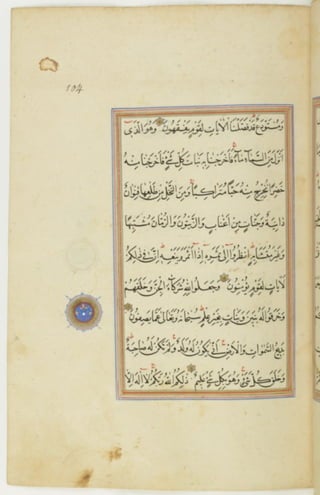 104
وَمُسْتَوْدَعٌ قَدْ فَصَّلْنَا الْآيَاتِ لِقَوْمٍ يَفْقَهُونَ وَهُوَ الَّذِى
أَنْزَلَ مِنَ السَّمَاءِ مَاءً فَأَخْرَجْنَا بِهِ نَبَاتَ كُلِّ شَىْءٍ فَأَخْرَجْنَا مِنْهُ
خَضِرًا نُخْرِجُ مِنْهُ حَبًّا مُتَرَاكِبًا وَمِنَ النَّخْلِ مِنْ طَلْعِهَا قِنْوَانٌ
دَانِيَةٌ وَجَنَّاتٍ مِنْ أَعْنَابٍ وَالزَّيْتُونَ وَالرُّمَّانَ مُشْتَبِهًا
وَغَيْرَ مُتَشَابِهٍ اُنْظُرُوا إِلَى ثَمَرِهِ إِذَا أَثْمَرَ وَيَنْعِهِ إِنَّ فِى ذٰلِكُمْ
لَآيَاتٍ لِقَوْمٍ يُؤْمِنُونَ وَجَعَلُوا لِلّٰهِ شُرَكَاءَ الْجِنَّ وَخَلَقَهُمْ
وَخَرَقُوا لَهُ بَنِينَ وَبَنَاتٍ بِغَيْرِ عِلْمٍ سُبْحَانَهُ وَتَعَالَى عَمَّا يَصِفُونَ
بَدِيعُ السَّمٰوَاتِ وَالْاَرْضِ أَنَّى يَكُونُ لَهُ وَلَدٌ وَلَمْ تَكُنْ لَهُ صَاحِبَةٌ
وَخَلَقَ كُلَّ شَىْءٍ وَهُوَ بِكُلِّ شَىْءٍ عَلِيمٌ ذٰلِكُمُ اللّٰهُ رَبُّكُمْ لَا إِلٰهَ إِلَّا